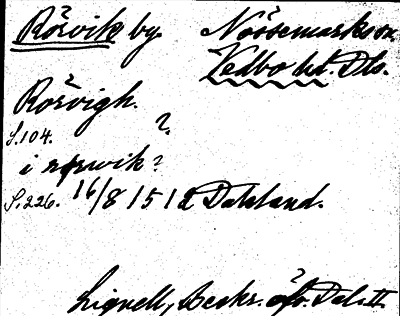 Rörvik by. Nössemarks sn.
Vedbo hd. Dls.
Rörvigh.
S. 104. ?
i rørwik?
S. 226. 16/8 1512 Dalsland.
Lignell, Beskr. öfv. Dal. II